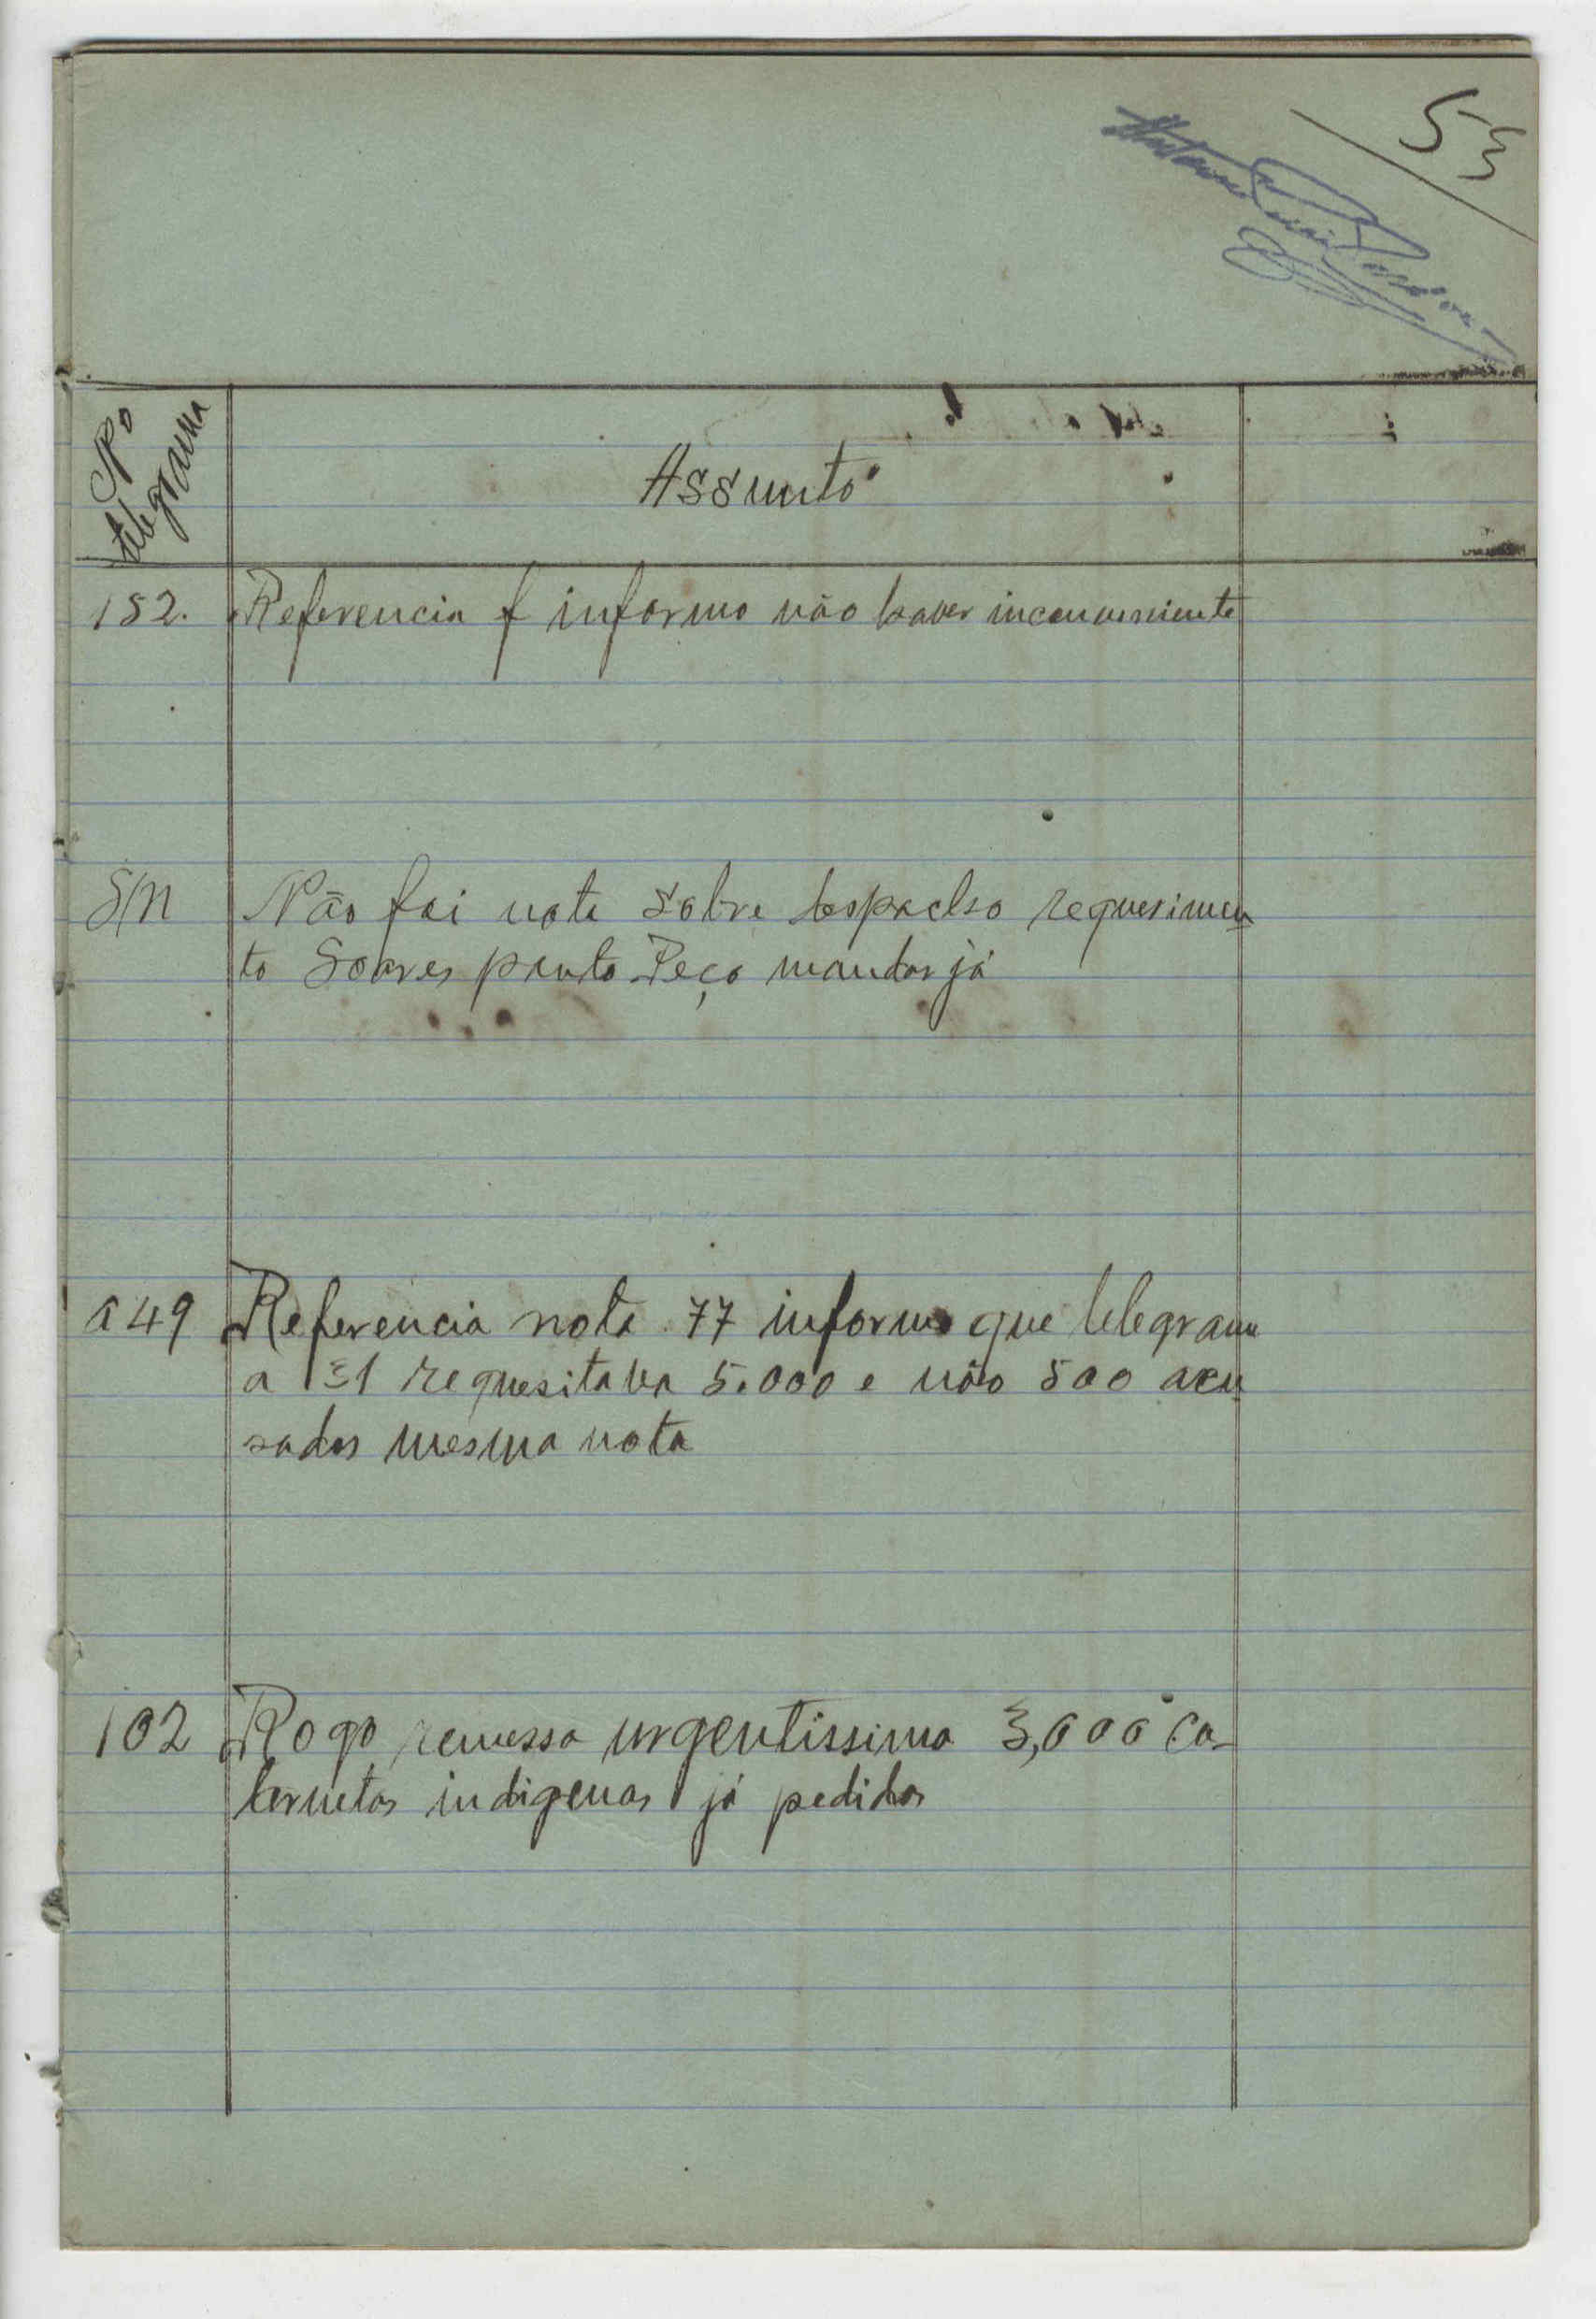 53
Nº
telegrama
Assunto
152. Referencia f informo não haver inconveniente
S/N Não foi nota sobre despacho requerimen
to Soares ponto Peço mandar já
a 49 Referencia nota 77 informo que telegram
a 31 requesitava 5.000 e não 500 acu
sados mesma nota
102 Rogo remessa urgentissima 3,000 ca-
dernetas indigenas já pedidas